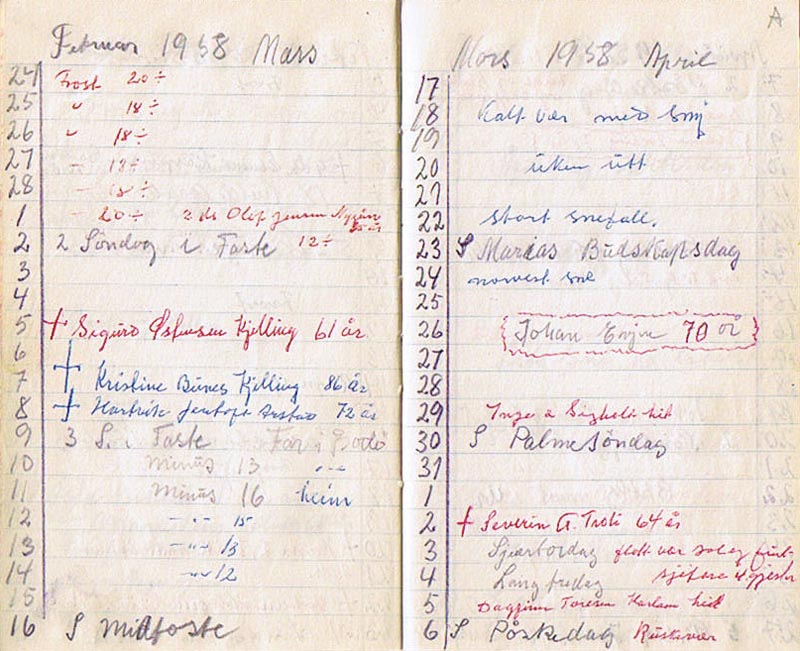 Februar 1958 Mars
24 Frost 20 ÷
25 " 18 ÷
26 " 18 ÷
27 - 18 ÷
28 - 18 ÷
1 - 20 ÷ 2 ds Olof Jensen
2 2 Söndag i Faste 12 ÷
3
4
5 + Sigurd Kjelling 61 år
6
7 + Kristine Bunes Kjelling 86 år
8 + 72 år
9 3 S. i Faste Far i Bodö
10 minus 13 -"-
11 minus 16 heim
12 -"- 15
13 -"- 13
14 -"- 12
15
16 S midfaste
A
Mars 1958 April
17
18 Kalt vær med snø
19
20 uken utt
21
22 stort snefall.
23 S Marias Budskapsdag
24 sne
25
26 Johan 70 år
27
28
29 Inga & hit
30 S Palmesöndag
31
1
2 + Severin A. Troli 64 år
3 Sjærtorsdag flott vær sol og fint
4 Langfredag
5 Dagfinn Toresen hit
6 S Påskedag Ruskevær